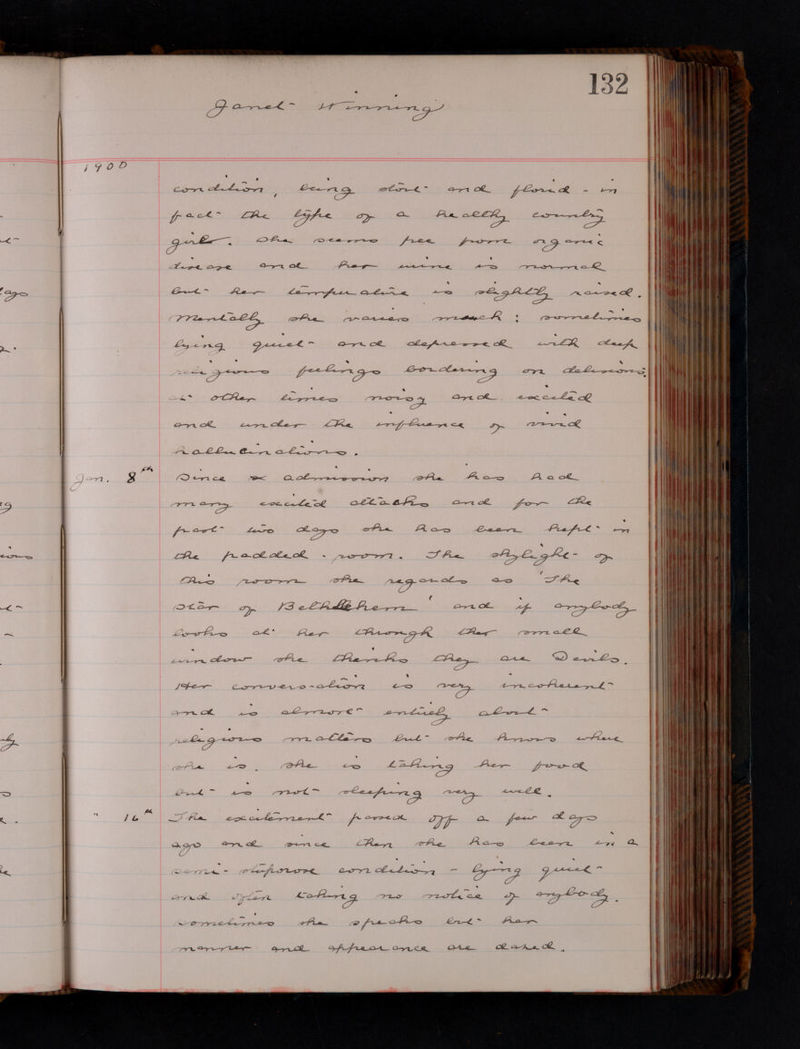 132
Janet Winning
1900
condition, being stout and florid - in
fact the type of a healthy country
girl. She seems free from organic
disease and her urine is normal
but her temperature is slightly raised.
Mentally she varies much : sometimes
lying quiet and depressed with deep
religious feelings bordering on delusions,
at other times noisy and excited
and under the influence of vivid
hallucinations.
Jan. 8th Since admission she has had
many excited attacks and for the
past two days she has been kept in
the padded-room. The skylight of
this room she regards as 'The
Star of Bethlehem' and if anybody
looks at her through the small
window she thinks they are Devils.
Her conversation is very incoherent
and is almost entirely about
religious matters but she knows where
she is. She is taking her food
but is not sleeping very well.
" 16th The excitement passed off a few days
ago and since then she has been in a
semi-stuporose condition - lying quiet
and often taking no notice of anybody.
Sometimes she speaks but her
manner and appearance are dazed.
ago